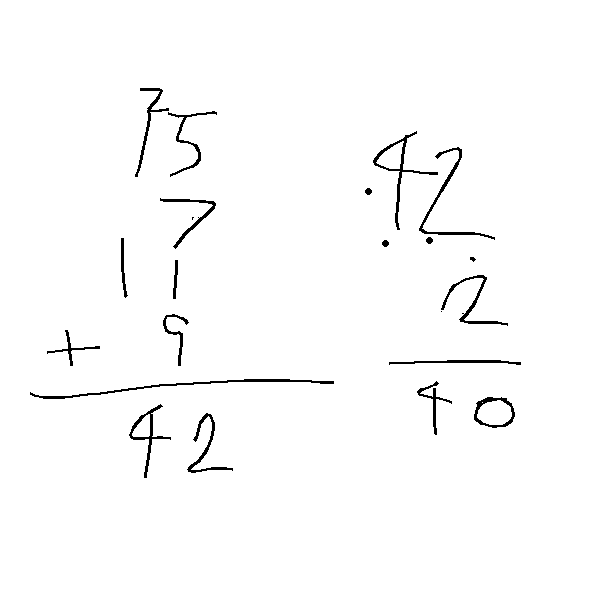 2
15
7
11
+ 9
42
42
2
40